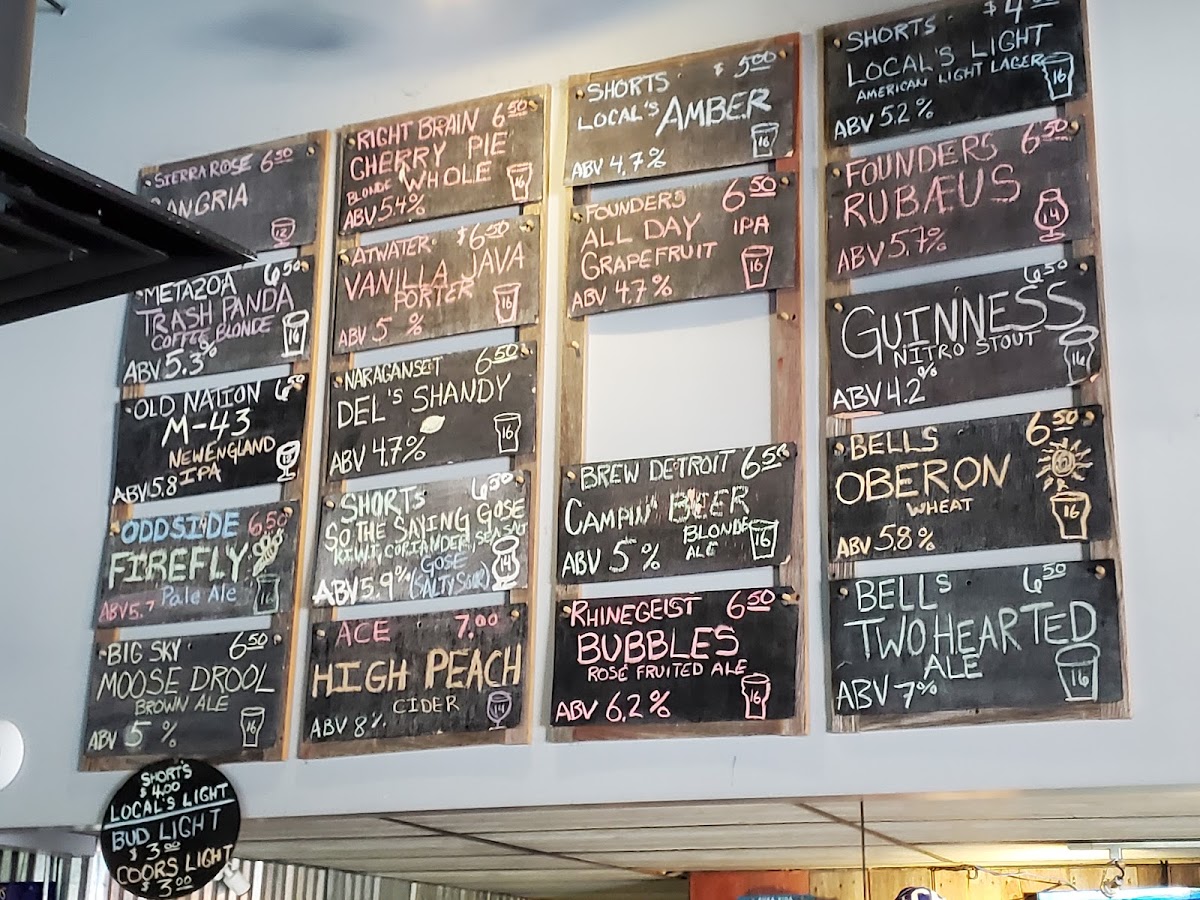 SIERRA ROSE 6.50
ANGRIA
12
METAZOA 6.50
TRASH PANDA
COFFEE BLONDE
16
ABV 5.3%
OLD NATION 6.50
M-43
NEW ENGLAND
IPA
ABV 5.8
ODDSIDE 6.50
FIREFLY
Pale Ale
16
ABV 5.7
BIG SKY 6.50
MOOSE DROOL
BROWN ALE
16
ABV 5 %
RIGHT BRAIN 6.50
CHERRY PIE
BLONDE WHOLE
16
ABV 5.4%
ATWATER $6.50
VANILLA JAVA
PORTER
16
ABV 5 %
NARAGANSET 6.50
DEL'S SHANDY
16
ABV 4.7%
SHORTS 6.50
SO THE SAYING GOSE
KIWI, CORIANDER, SEA SALT
GOSE
14
ABV 5.9% (SALTY SOUR)
ACE 7.00
HIGH PEACH
CIDER
14
ABV 8%
SHORTS $5.00
LOCAL'S AMBER
16
ABV 4.7%
FOUNDERS 6.50
ALL DAY IPA
GRAPEFRUIT
16
ABV 4.7%
BREW DETROIT 6.50
CAMPUS BEER
BLONDE
ALE
16
ABV 5 %
RHINEGEIST 6.50
BUBBLES
ROSÉ FRUITED ALE
16
ABV 6.2%
SHORTS $4.00
LOCAL'S LIGHT
AMERICAN LIGHT LAGER
16
ABV 5.2%
FOUNDERS 6.50
RUBÆUS
14
ABV 5.7%
6.50
GUINNESS
NITRO STOUT
16
ABV 4.2%
BELLS 6.50
OBERON
WHEAT
16
ABV 5.8%
BELLS 6.50
TWO HEARTED
ALE
16
ABV 7%
SHORT'S
$4.00
LOCAL'S LIGHT
BUD LIGHT
$3.00
COORS LIGHT
$3.00